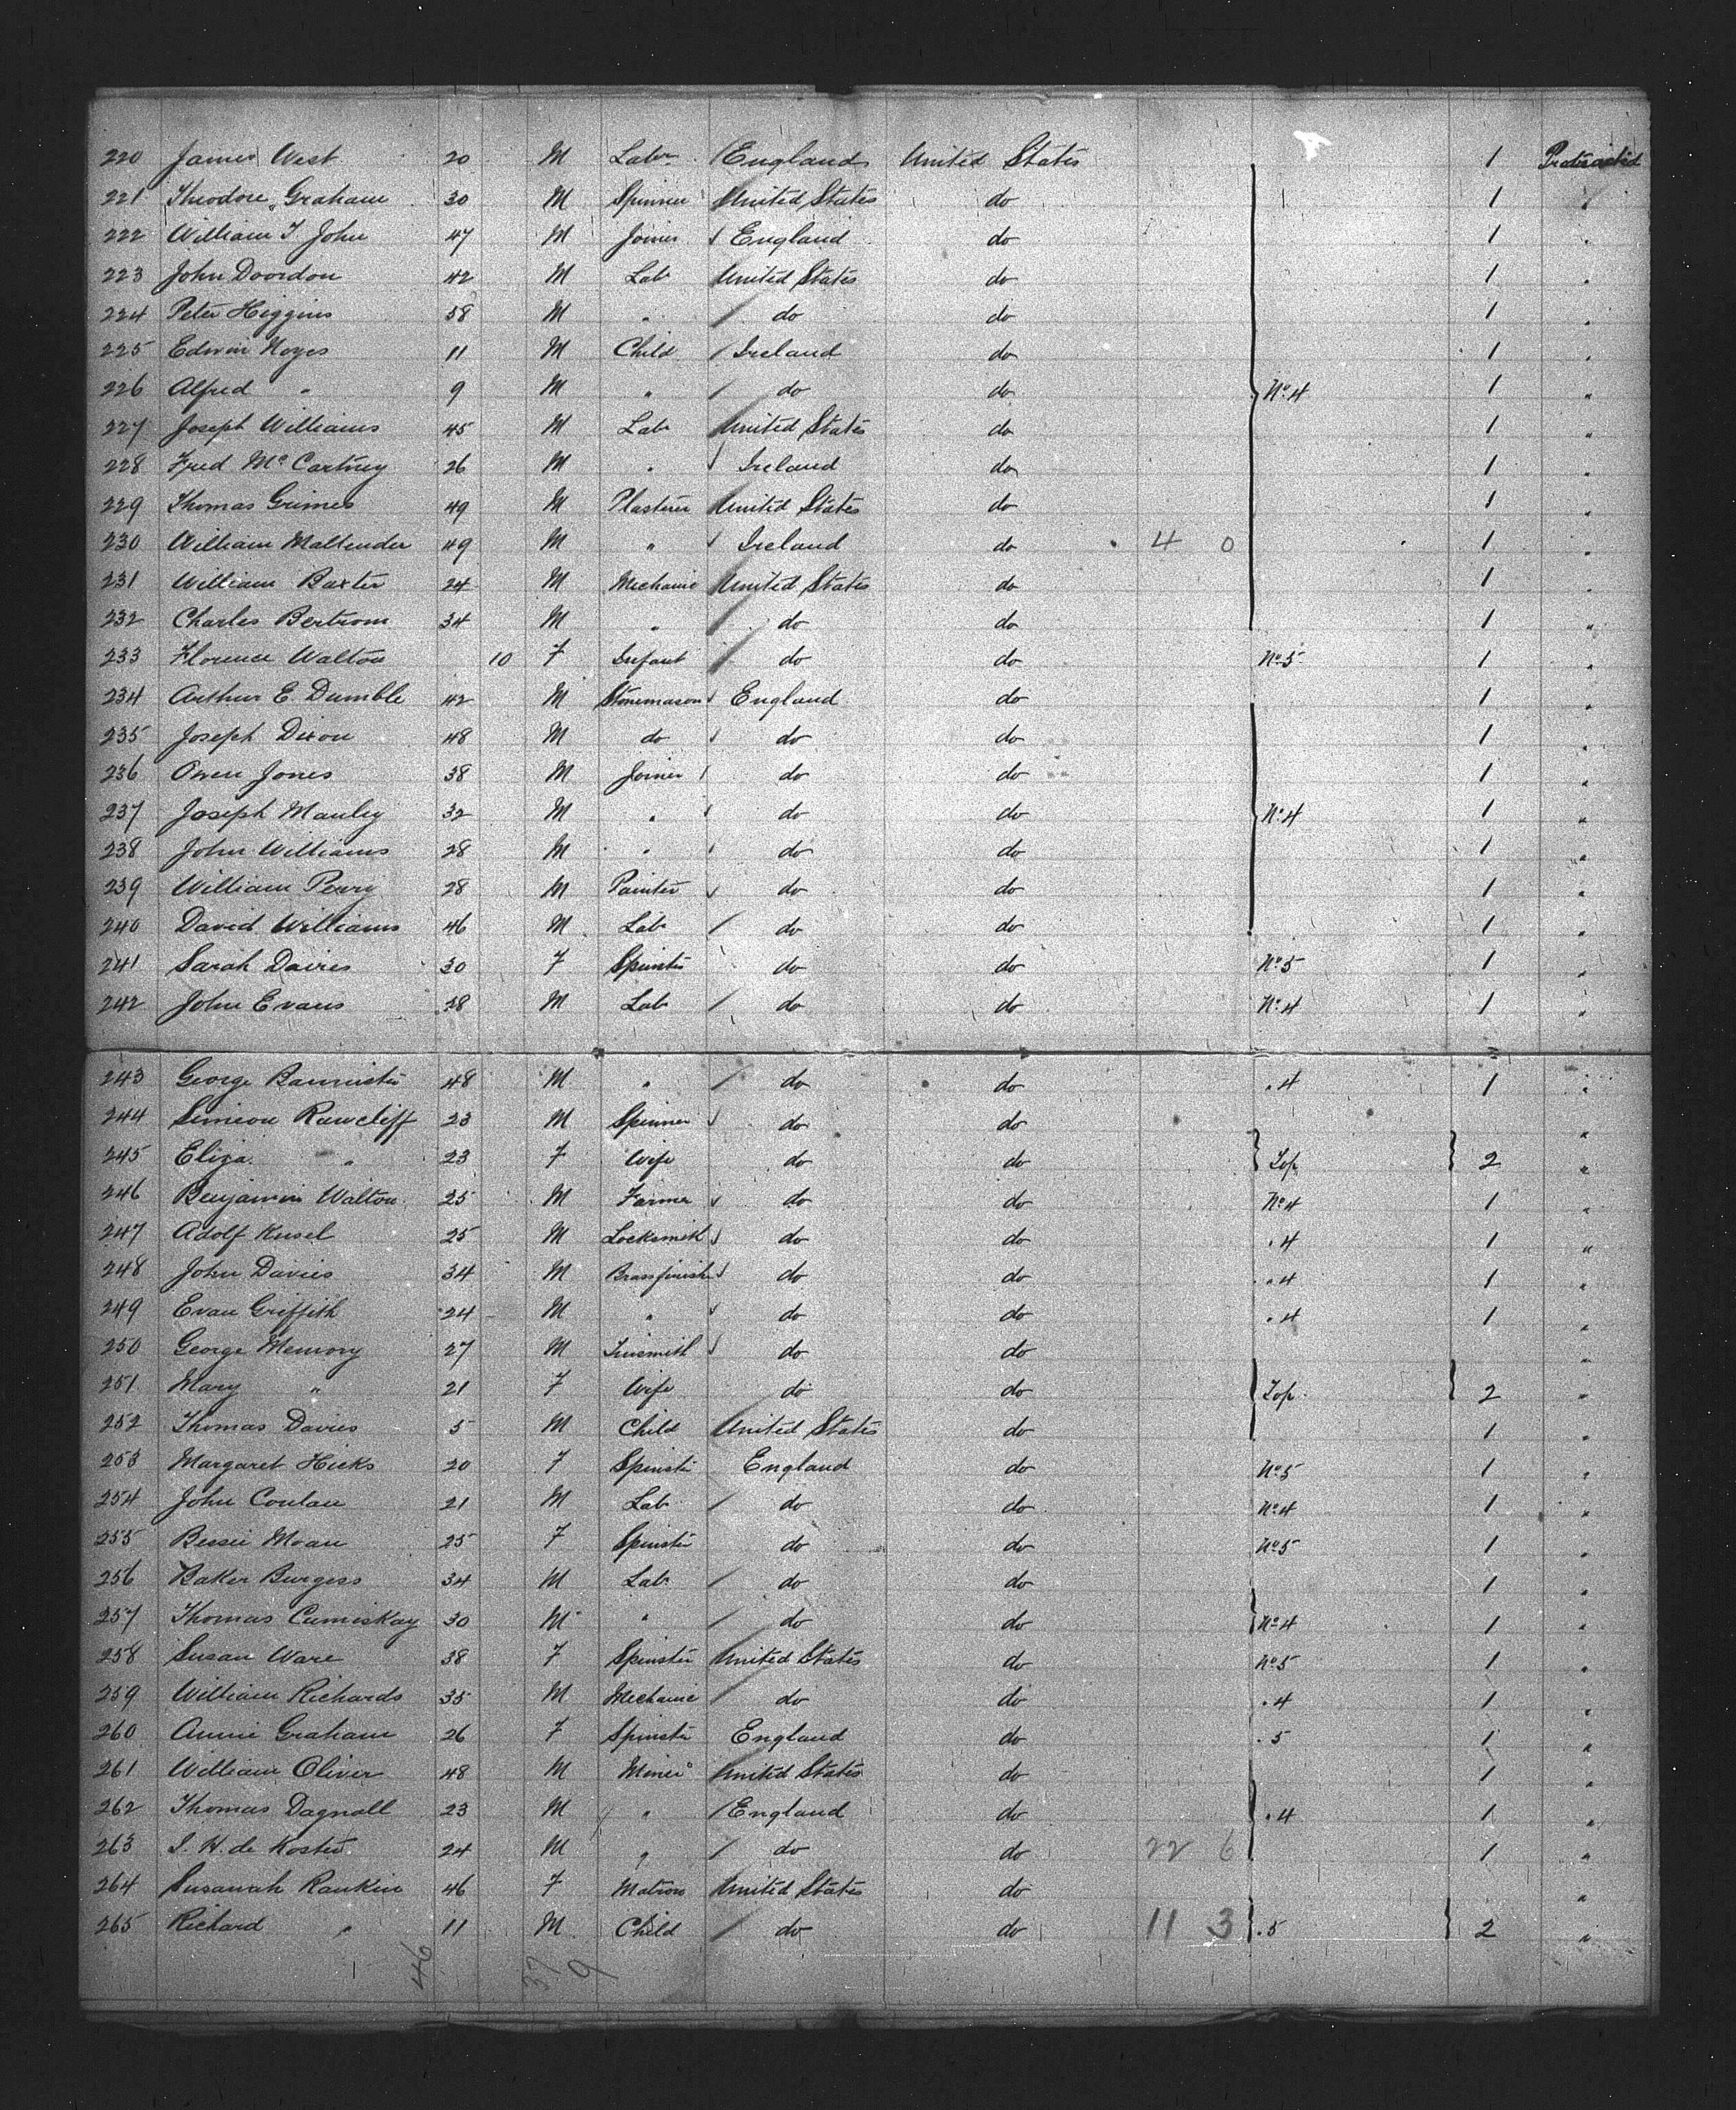 220 James West 20 M Labr England United States 1 Protracted
221 Theodore Graham 30 M Spinner United States do 1 "
222 William T John 47 M Joiner England do 1 "
223 John Doordon 42 M Labr United States do 1 "
224 Peter Higgins 58 M " do do 1 "
225 Edwin Noyes 11 M Child Ireland do 1 "
226 Alfred " 9 M " do do No 4 1 "
227 Joseph Williams 45 M Labr United States do 1 "
228 Fred McCartney 26 M " Ireland do 1 "
229 Thomas Grimes 49 M Plasterer United States do 1 "
230 William Maltender 49 M " Ireland do 4 0 1 "
231 William Baxter 24 M Mechanic United States do 1 "
232 Charles Bertrom 34 M " do do 1 "
233 Florence Walton 10 F Infant do do No 5 1 "
234 Arthur E Dumble 42 M Stonemason England do 1 "
235 Joseph Dixon 48 M do do do 1 "
236 Owen Jones 38 M Joiner do do 1 "
237 Joseph Manley 32 M " do do No 4 1 "
238 John Williams 28 M " do do 1 "
239 William Perry 28 M Painter do do 1 "
240 David Williams 46 M Labr do do 1 "
241 Sarah Davies 30 F Spinster do do No 5 1 "
242 John Evans 38 M Labr do do No 4 1 "
243 George Bannister 48 M " do do " 4 1 "
244 Simeon Rawcliff 23 M Spinner do do "
245 Eliza " 23 F Wife do do Top 2 "
246 Benjamin Walton 25 M Farmer do do No 4 1 "
247 Adolf Kusel 25 M Locksmith do do " 4 1 "
248 John Davies 34 M Brassfinisher do do " 4 1 "
249 Evan Griffith 24 M " do do " 4 1 "
250 George Memory 27 M Tinsmith do do "
251 Mary " 21 F Wife do do Top 2 "
252 Thomas Davies 5 M Child United States do 1 "
253 Margaret Hicks 20 F Spinster England do No 5 1 "
254 John Conlan 21 M Labr do do No 4 1 "
255 Bessie Moan 25 F Spinster do do No 5 1 "
256 Baker Burgess 34 M Labr do do 1 "
257 Thomas Cumiskay 30 M " do do No 4 1 "
258 Susan Ware 38 F Spinster United States do No 5 1 "
259 William Richards 35 M Mechanic do do " 4 1 "
260 Annie Graham 26 F Spinster England do " 5 1 "
261 William Oliver 48 M Miner United States do 1 "
262 Thomas Dagnall 23 M " England do " 4 1 "
263 S. H. de Koster 24 M " do do 22 6 1 "
264 Susannah Rankin 46 F Matron United States do "
265 Richard " 11 M Child do do 11 3 " 5 2 "
46 37 9